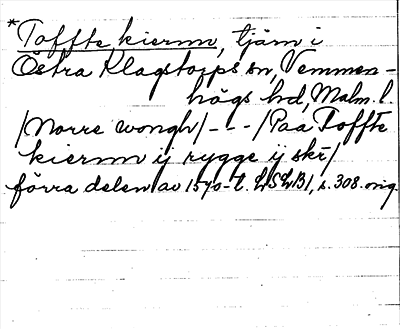 *Toffte kierrn, tjärn i
Östra Klagstorps sn, Vemmen-
högs hd, Malm. l.
/Norre wongh/---/Paa Toffte
kierrn ij rygge ij skr/
förra delen av 1570-t. LSLB1, s. 308. orig.